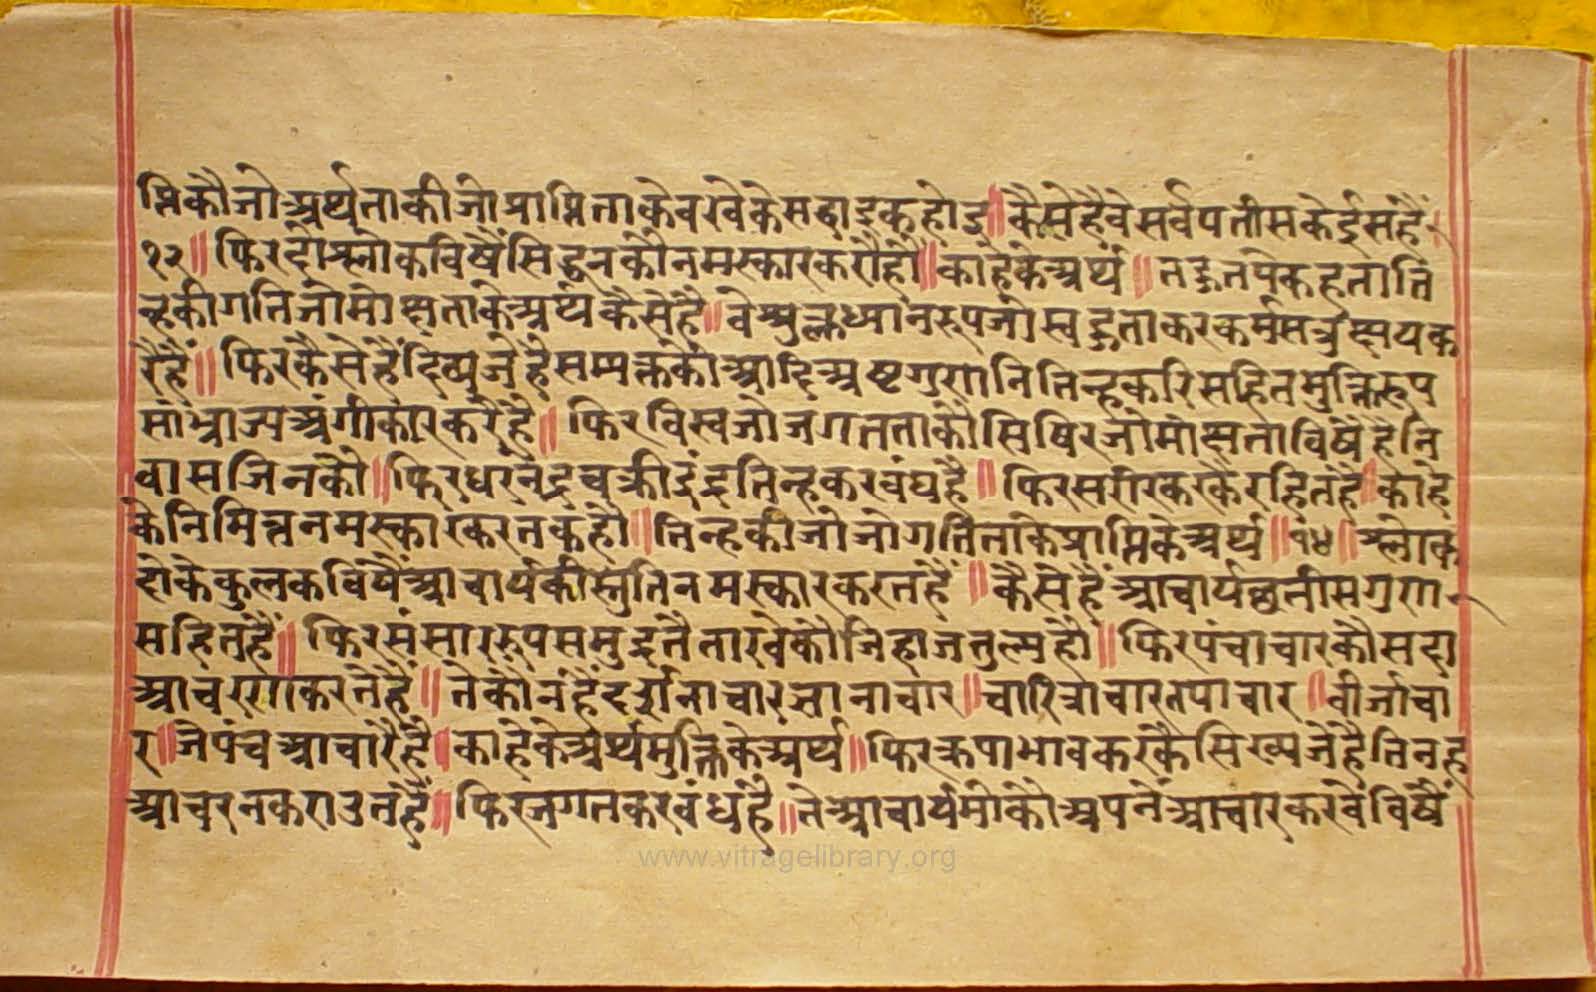 प्तिकौजोअर्थताकीजोप्राप्तिताकेवरवेकेसहाइकहोइ॥कैसेहैवेसर्वपतीसकेईसहैं
१२॥फिरदोश्लोकविषैंसिद्धनकौनमस्कारकरौहौ॥काहेकेअर्थ॥तद्गतपेकहतातिं
न्हकीगतिजोमोक्षताकेअर्थकैसेहै॥वेशुक्लध्यानरूपजोखड्गताकरकर्मसत्रुक्षयक
रैहैं॥फिरकैसेहैंदिव्यजेहैसम्यक्तकोआदिअष्टगुणनितिन्हकरिसहितमुक्तिरूप
सांम्राज्यअंगीकारकरैहै॥फिरविस्वजोजगतताकौसिषिरजोमोक्षताविषैंहैनि
वासजिनकौ॥फिरधरनेंद्रचक्रीइंद्रतिन्हकरवंद्यहै॥फिरसरीरकरकैरहितहै॥काहे
केनिमित्तनमस्कारकरतकहौ॥तिन्हकीजोजोगतितांकेप्राप्तिकेअर्थ॥१४॥श्लोक
दोकेकुलकविषैंआचार्यकीस्तुतिनमस्कारकरतहैं॥कैसेहैंआचार्यछतीसगुण
सहितहैं॥फिरसंसाररूपसमुद्रतैतारवेकौजिहाजतुल्यहौ॥फिरपंचाचारकौसदा
आचरणकरतेहैं॥तेकौनहैंदर्शनाचारज्ञानाचार॥चारित्राचारतपाचार॥वीर्जाचा
र॥जेपंचआचारैहै॥काहेकेअर्थमुक्तिकेअर्थ॥फिरक्रपाभावकरकैसिख्यजेहैतिनह
आचरनकराउतहैं॥फिरजगतकरवंधहै॥तेआचार्यमोकौअपनेंआचारकरवेंविषैं
www.vitragelibrary.org